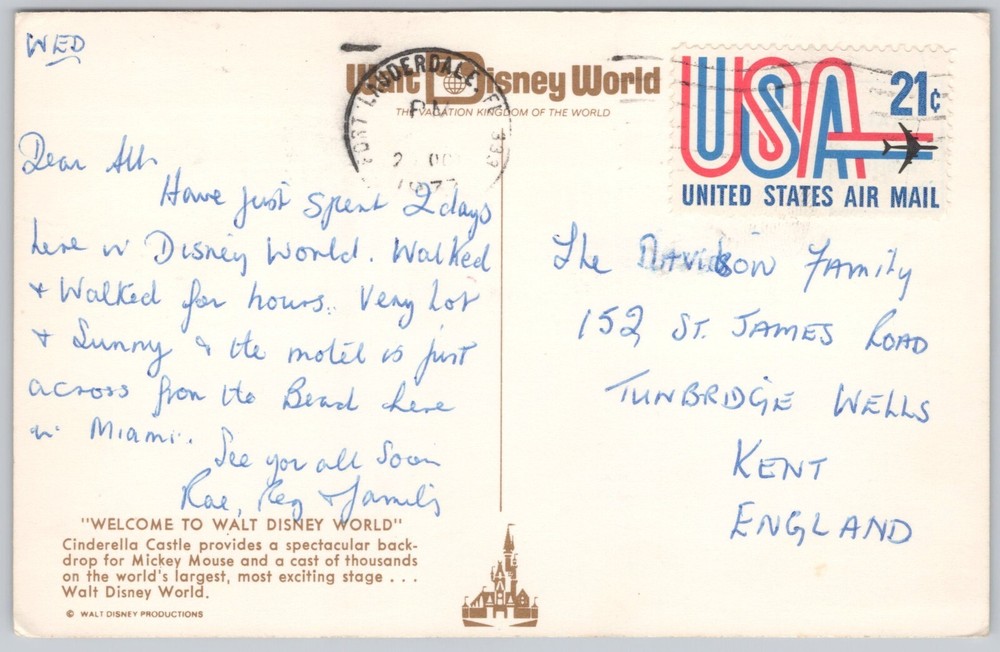 WED
Walt Disney World
THE VACATION KINGDOM OF THE WORLD
FORT LAUDERDALE, FL 333
PM
2 OC
197
USA 21¢
UNITED STATES AIR MAIL
Dear All
Have just spent 2 days
here in Disney World. Walked
+ Walked for hours. Very hot
+ Sunny & the motel is just
across from the Beach here
in Miami.
See you all Soon
Rae, Reg + family
The Davidson Family
152 ST. JAMES ROAD
TUNBRIDGE WELLS
KENT
ENGLAND
"WELCOME TO WALT DISNEY WORLD"
Cinderella Castle provides a spectacular back-
drop for Mickey Mouse and a cast of thousands
on the world's largest, most exciting stage . . .
Walt Disney World.
© WALT DISNEY PRODUCTIONS